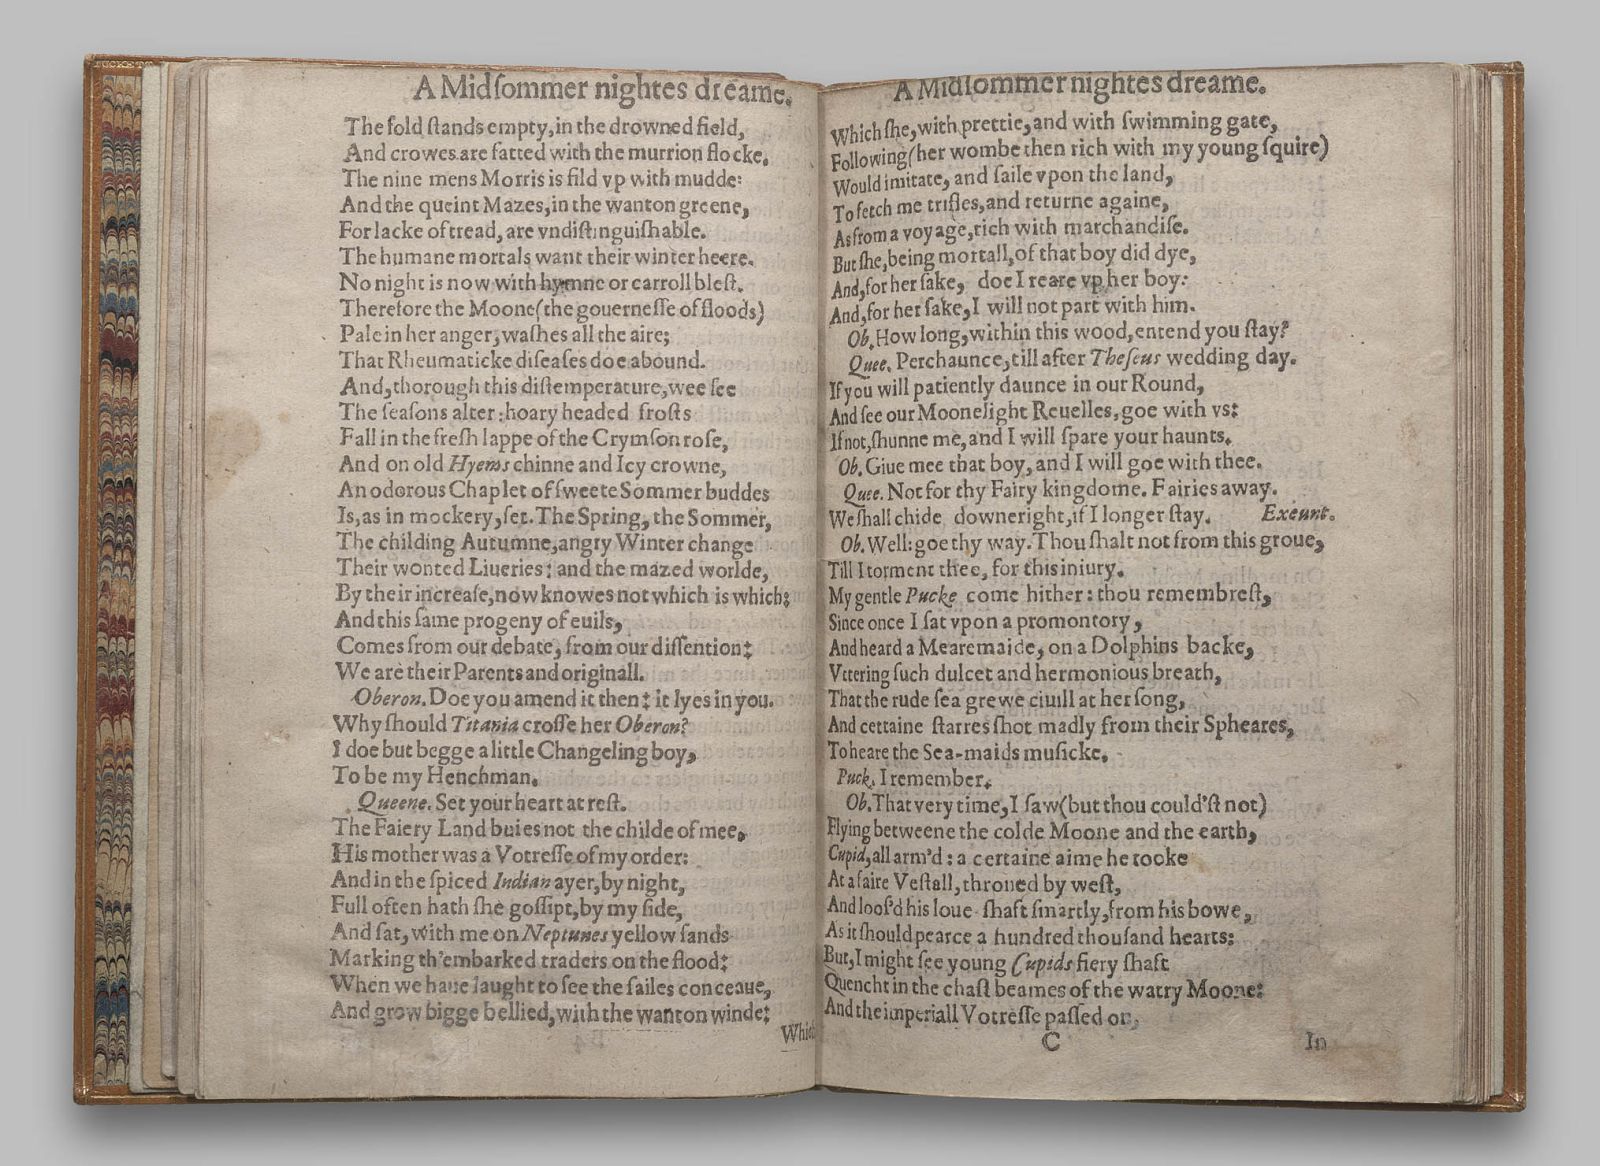 A Midſommer nightes dreame.
The fold ſtands empty, in the drowned field,
And crowes are fatted with the murrion flocke.
The nine mens Morris is fild vp with mudde:
And the queint Mazes, in the wanton greene,
For lacke of tread, are vndiſtinguiſhable.
The humane mortals want their winter heere.
No night is now with hymne or carroll bleſt.
Therefore the Moone (the gouerneſſe of floods)
Pale in her anger, waſhes all the aire;
That Rheumaticke diſeaſes doe abound.
And, thorough this diſtemperature, wee ſee
The ſeaſons alter: hoary headed froſts
Fall in the freſh lappe of the Crymſon roſe,
And on old Hyems chinne and Icy crowne,
An odorous Chaplet of ſweete Sommer buddes
Is, as in mockery, ſet. The Spring, the Sommer,
The childing Autumne, angry Winter change
Their wonted Liueries: and the mazed worlde,
By their increaſe, now knowes not which is which:
And this ſame progeny of euils,
Comes from our debate, from our diſſention:
We are their Parents and originall.
Oberon. Doe you amend it then: it lyes in you.
Why ſhould Titania croſſe her Oberon?
I doe but begge a little Changeling boy,
To be my Henchman.
Queene. Set your heart at reſt.
The Faiery Land buies not the childe of mee,
His mother was a Votreſſe of my order:
And in the ſpiced Indian ayer, by night,
Full often hath ſhe goſſipt, by my ſide,
And ſat, with me on Neptunes yellow ſands
Marking th'embarked traders on the flood:
When we haue laught to ſee the ſailes conceaue,
And grow bigge bellied, with the wanton winde:
Which
A Midſommer nightes dreame.
Which ſhe, with prettie, and with ſwimming gate,
Following (her wombe then rich with my young ſquire)
Would imitate, and ſaile vpon the land,
To fetch me trifles, and returne againe,
As from a voyage, rich with marchandiſe.
But ſhe, being mortall, of that boy did dye,
And, for her ſake, doe I reare vp her boy:
And, for her ſake, I will not part with him.
Ob. How long, within this wood, entend you ſtay?
Quee. Perchaunce, till after Theſeus wedding day.
If you will patiently daunce in our Round,
And ſee our Moonelight Reuelles, goe with vs:
If not, ſhunne me, and I will ſpare your haunts.
Ob. Giue mee that boy, and I will goe with thee.
Quee. Not for thy Fairy kingdome. Fairies away.
We ſhall chide downeright, if I longer ſtay. Exeunt.
Ob. Well: goe thy way. Thou ſhalt not from this groue,
Till I torment thee, for this iniury.
My gentle Pucke come hither: thou remembreſt,
Since once I ſat vpon a promontory,
And heard a Mearemaide, on a Dolphins backe,
Vttering ſuch dulcet and hermonious breath,
That the rude ſea grewe ciuill at her ſong,
And certaine ſtarres ſhot madly from their Spheares,
To heare the Sea-maids muſicke.
Puck. I remember.
Ob. That very time, I ſaw (but thou could'ſt not)
Flying betweene the colde Moone and the earth,
Cupid, all arm'd: a certaine aime he tooke
At a faire Veſtall, throned by weſt,
And looſ'd his loue-ſhaft ſmartly, from his bowe,
As it ſhould pearce a hundred thouſand hearts:
But, I might ſee young Cupids fiery ſhaft
Quencht in the chaſt beames of the watry Moone:
And the imperiall Votreſſe paſſed on,
C In